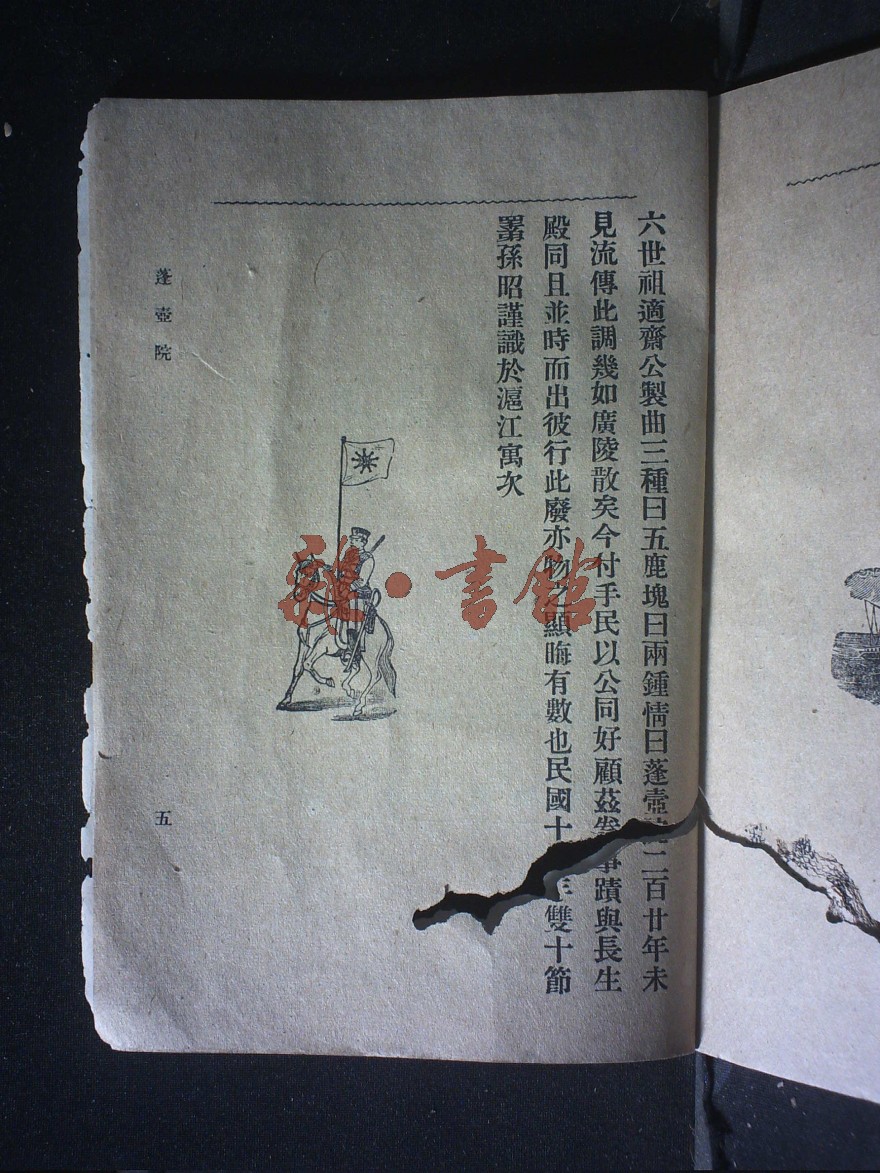 六世祖適齋公製曲三種曰五鹿塊曰兩鍾情曰蓬壺二百廿年未
見流傳此調幾如廣陵散矣今付手民以公同好顧茲事蹟與長生
殿同且並時而出彼行此廢亦物之顯晦有數也民國十年雙十節
孫昭謹識於滬江寓次
蓬壺院
五
·書館